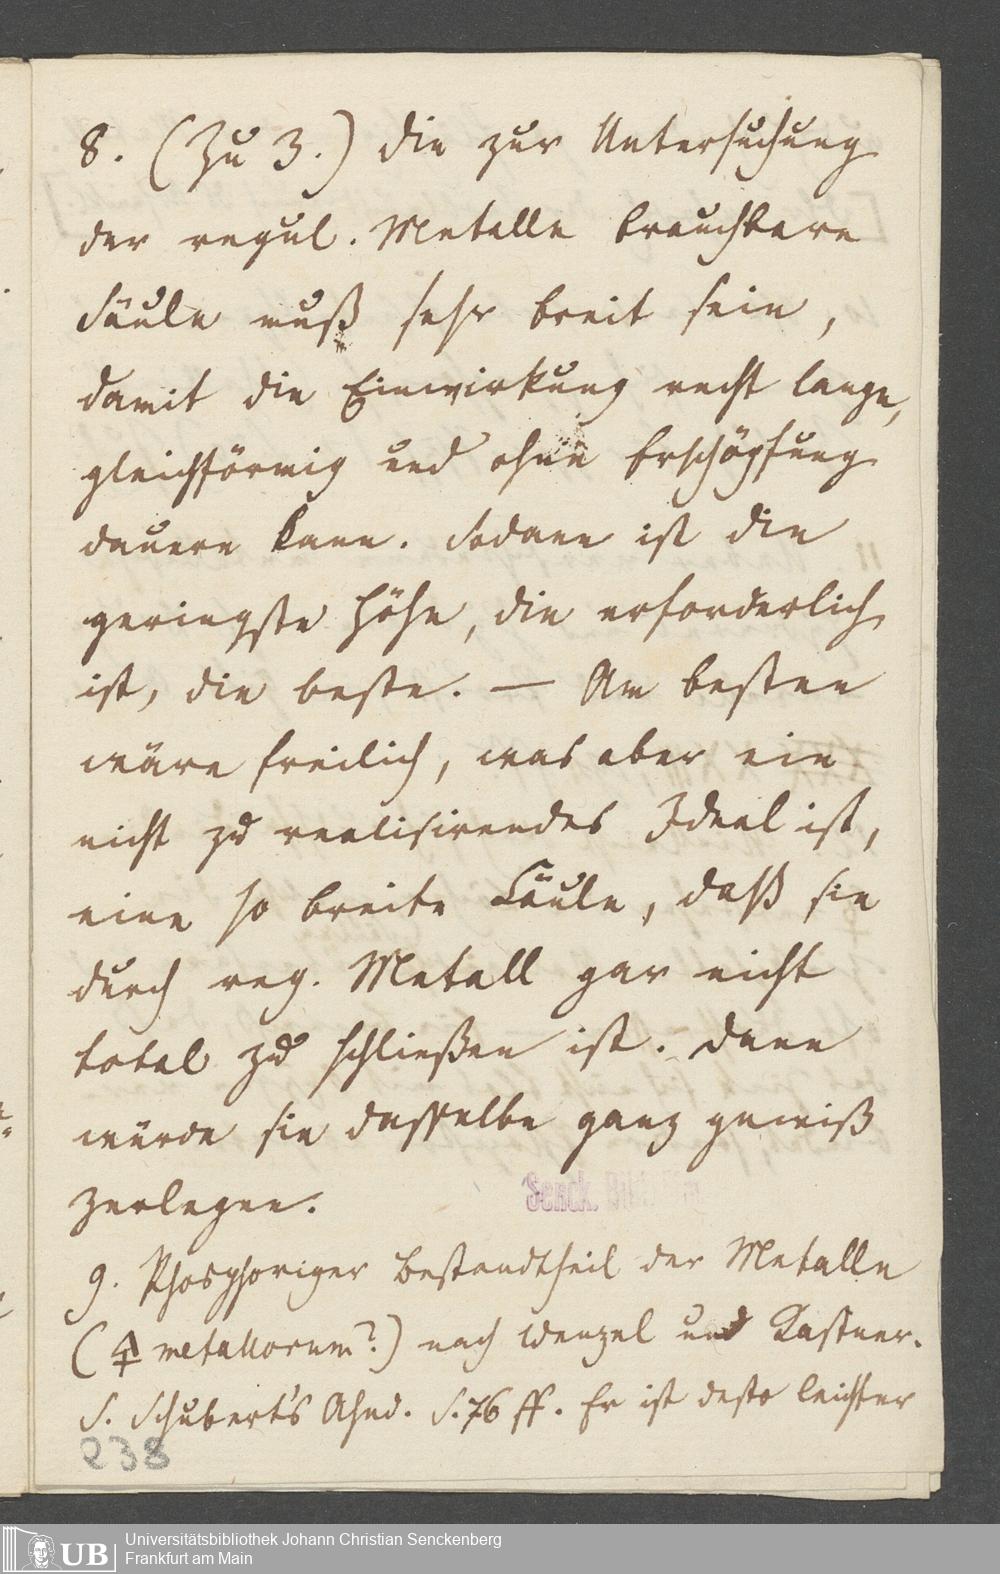 8. (Zu 3.) die zur Untersuchung
der regul. Metalle brauchbare
Säule muß sehr breit sein,
damit die Einwirkung recht lange,
gleichförmig und ohne Erschöpfung
dauern kann. Sodann ist die
geringste Höhe, die erforderlich
ist, die beste. — Am besten
wäre freilich, was aber ein
nicht zu realisirendes Ideal ist,
eine so breite Säule, daß sie
durch reg. Metall gar nicht
total zu schließen ist. dann
würde sie dasselbe ganz gewiß
zerlegen.
9. Phosphoriger Bestandtheil der Metalle
(🜍 metallorum?) nach Wenzel und Kastner.
S. Schubert's Ahnd. S. 76 ff. Er ist desto leichter
238
Senck.
UB
Universitätsbibliothek Johann Christian Senckenberg
Frankfurt am Main